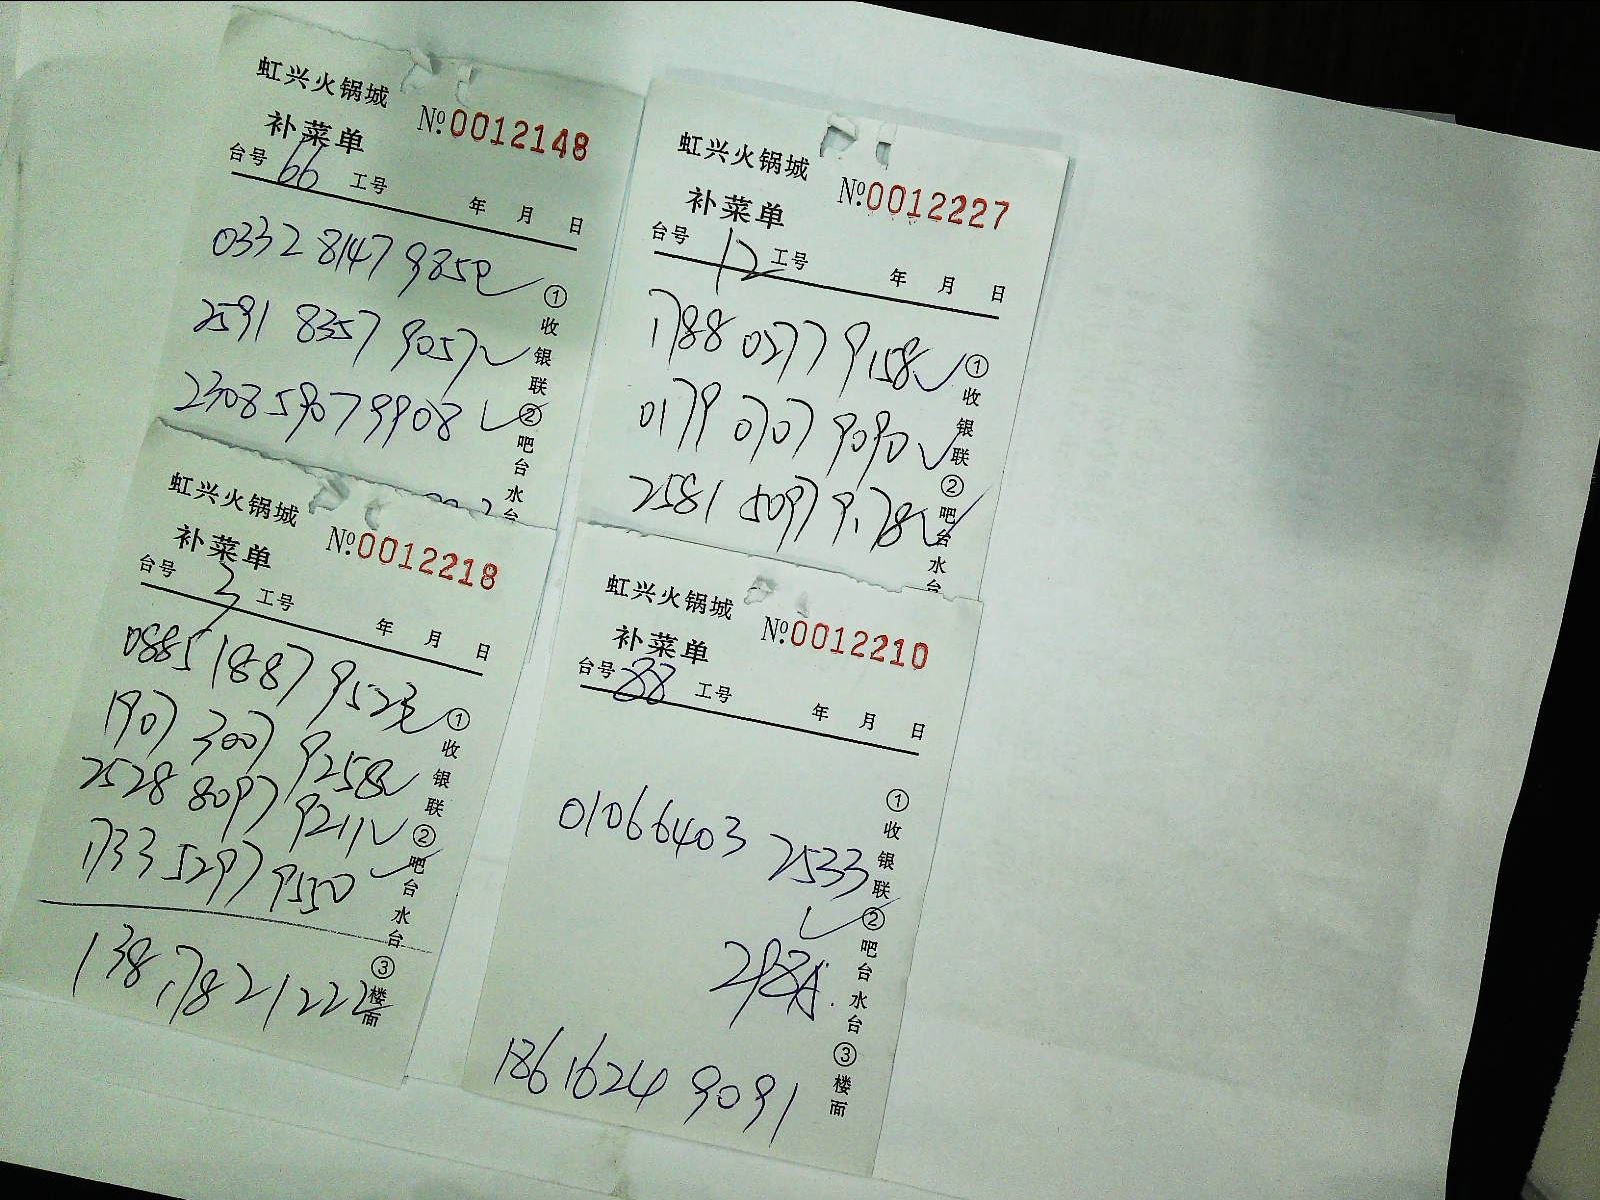 虹兴火锅城
补菜单
№0012148
台号 66 工号 年 月 日
0332 8147 9850
2591 8357 9057
2308 5907 9908
①收银联
②吧台水台
虹兴火锅城
补菜单
№0012227
台号 12 工号 年 月 日
1788 0277 9158
0179 0707 9090
2581 5097 9178
①收银联
②吧台水台
虹兴火锅城
补菜单
№0012218
台号 3 工号 年 月 日
0885 1887 9523
1907 3007 9258
2528 8097 9211
1733 5297 9550
138 1782 1222
①收银联
②吧台水台
③楼面
虹兴火锅城
补菜单
№0012210
台号 88 工号 年 月 日
01066403 2533
298
186 1624 9091
①收银联
②吧台水台
③楼面